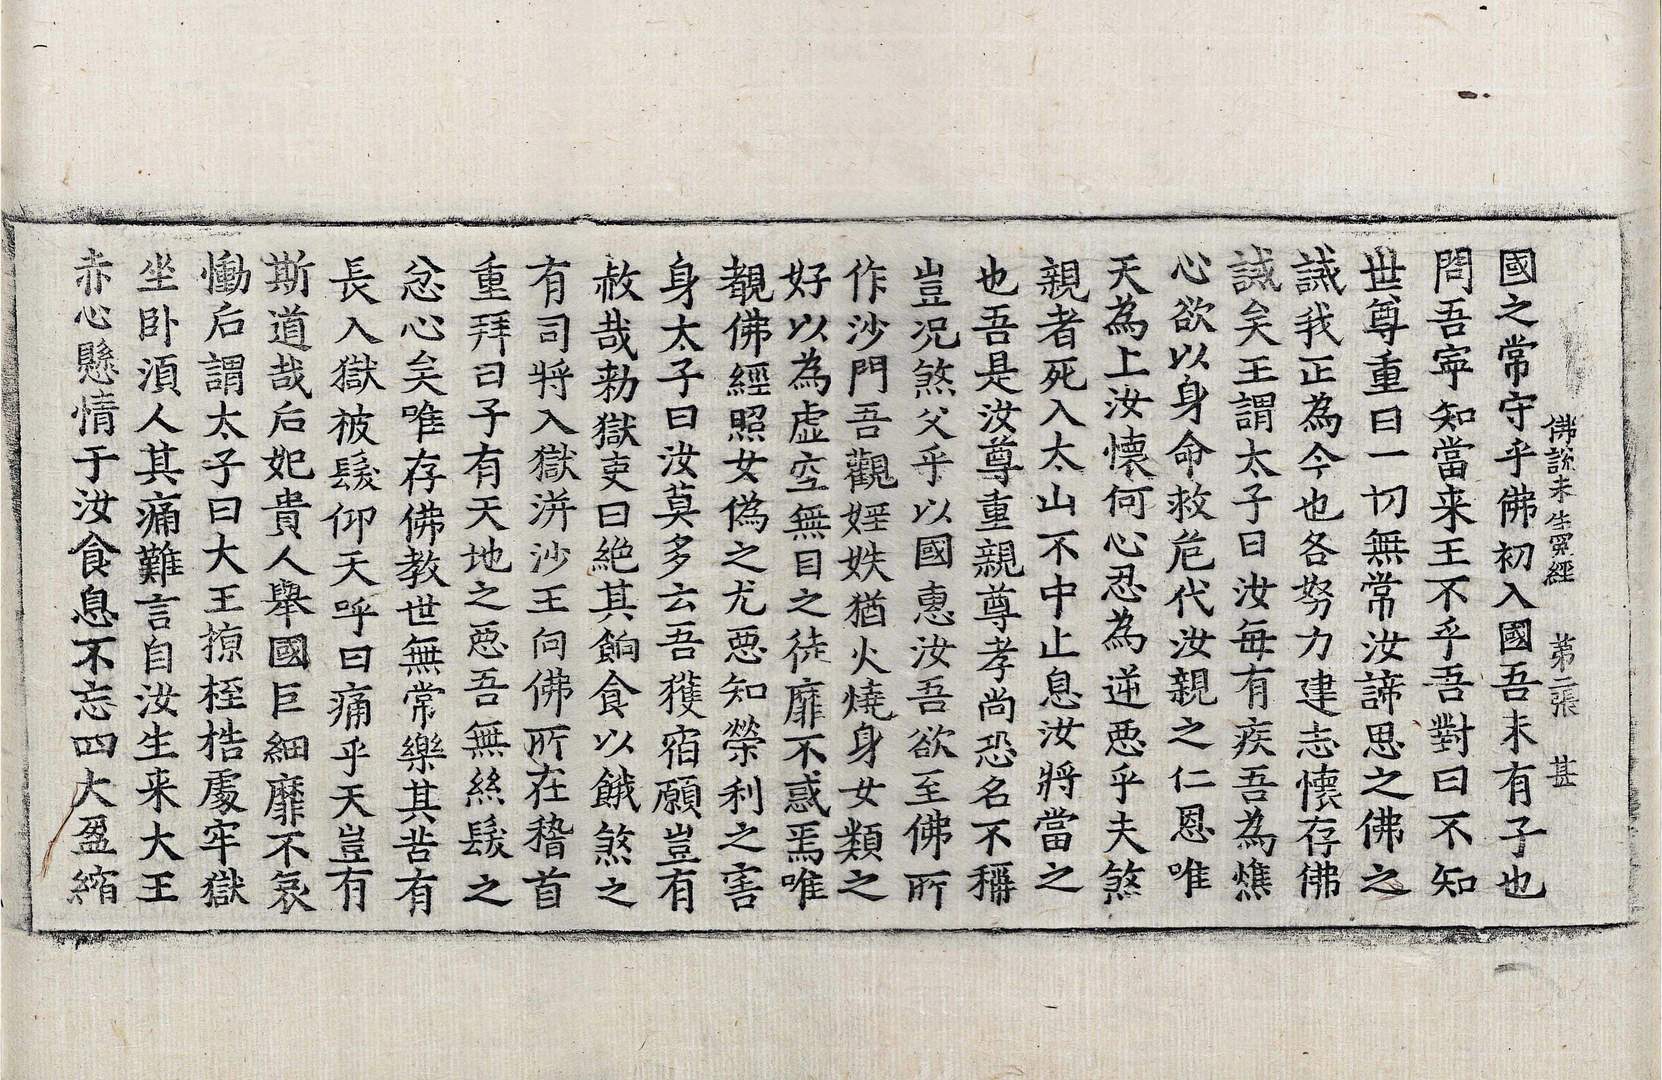 佛說未生冤經 第二張 甚
國之常守乎佛初入國吾未有子也
問吾寧知當来王不乎吾對曰不知
世尊重曰一切無常汝諦思之佛之
誡我正為今也各努力建志懷存佛
誡矣王謂太子曰汝每有疾吾為燋
心欲以身命救危代汝親之仁恩唯
天為上汝懷何心忍為逆惡乎夫煞
親者死入太山不中止息汝將當之
也吾是汝尊重親尊孝尚恐名不稱
豈況煞父乎以國惠汝吾欲至佛所
作沙門吾觀婬妷猶火燒身女類之
好以為虛空無目之徒靡不惑焉唯
覩佛經照女偽之尤惡知榮利之害
身太子曰汝莫多云吾獲宿願豈有
赦哉勑獄吏曰絕其餉食以餓煞之
有司將入獄洴沙王向佛所在稽首
重拜曰子有天地之惡吾無絲髮之
忿心矣唯存佛教世無常樂其苦有
長入獄被髮仰天呼曰痛乎天豈有
斯道哉后妃貴人舉國巨細靡不哀
慟后謂太子曰大王掠桎梏處牢獄
坐卧湏人其痛難言自汝生来大王
赤心懸情于汝食息不忘四大盈縮